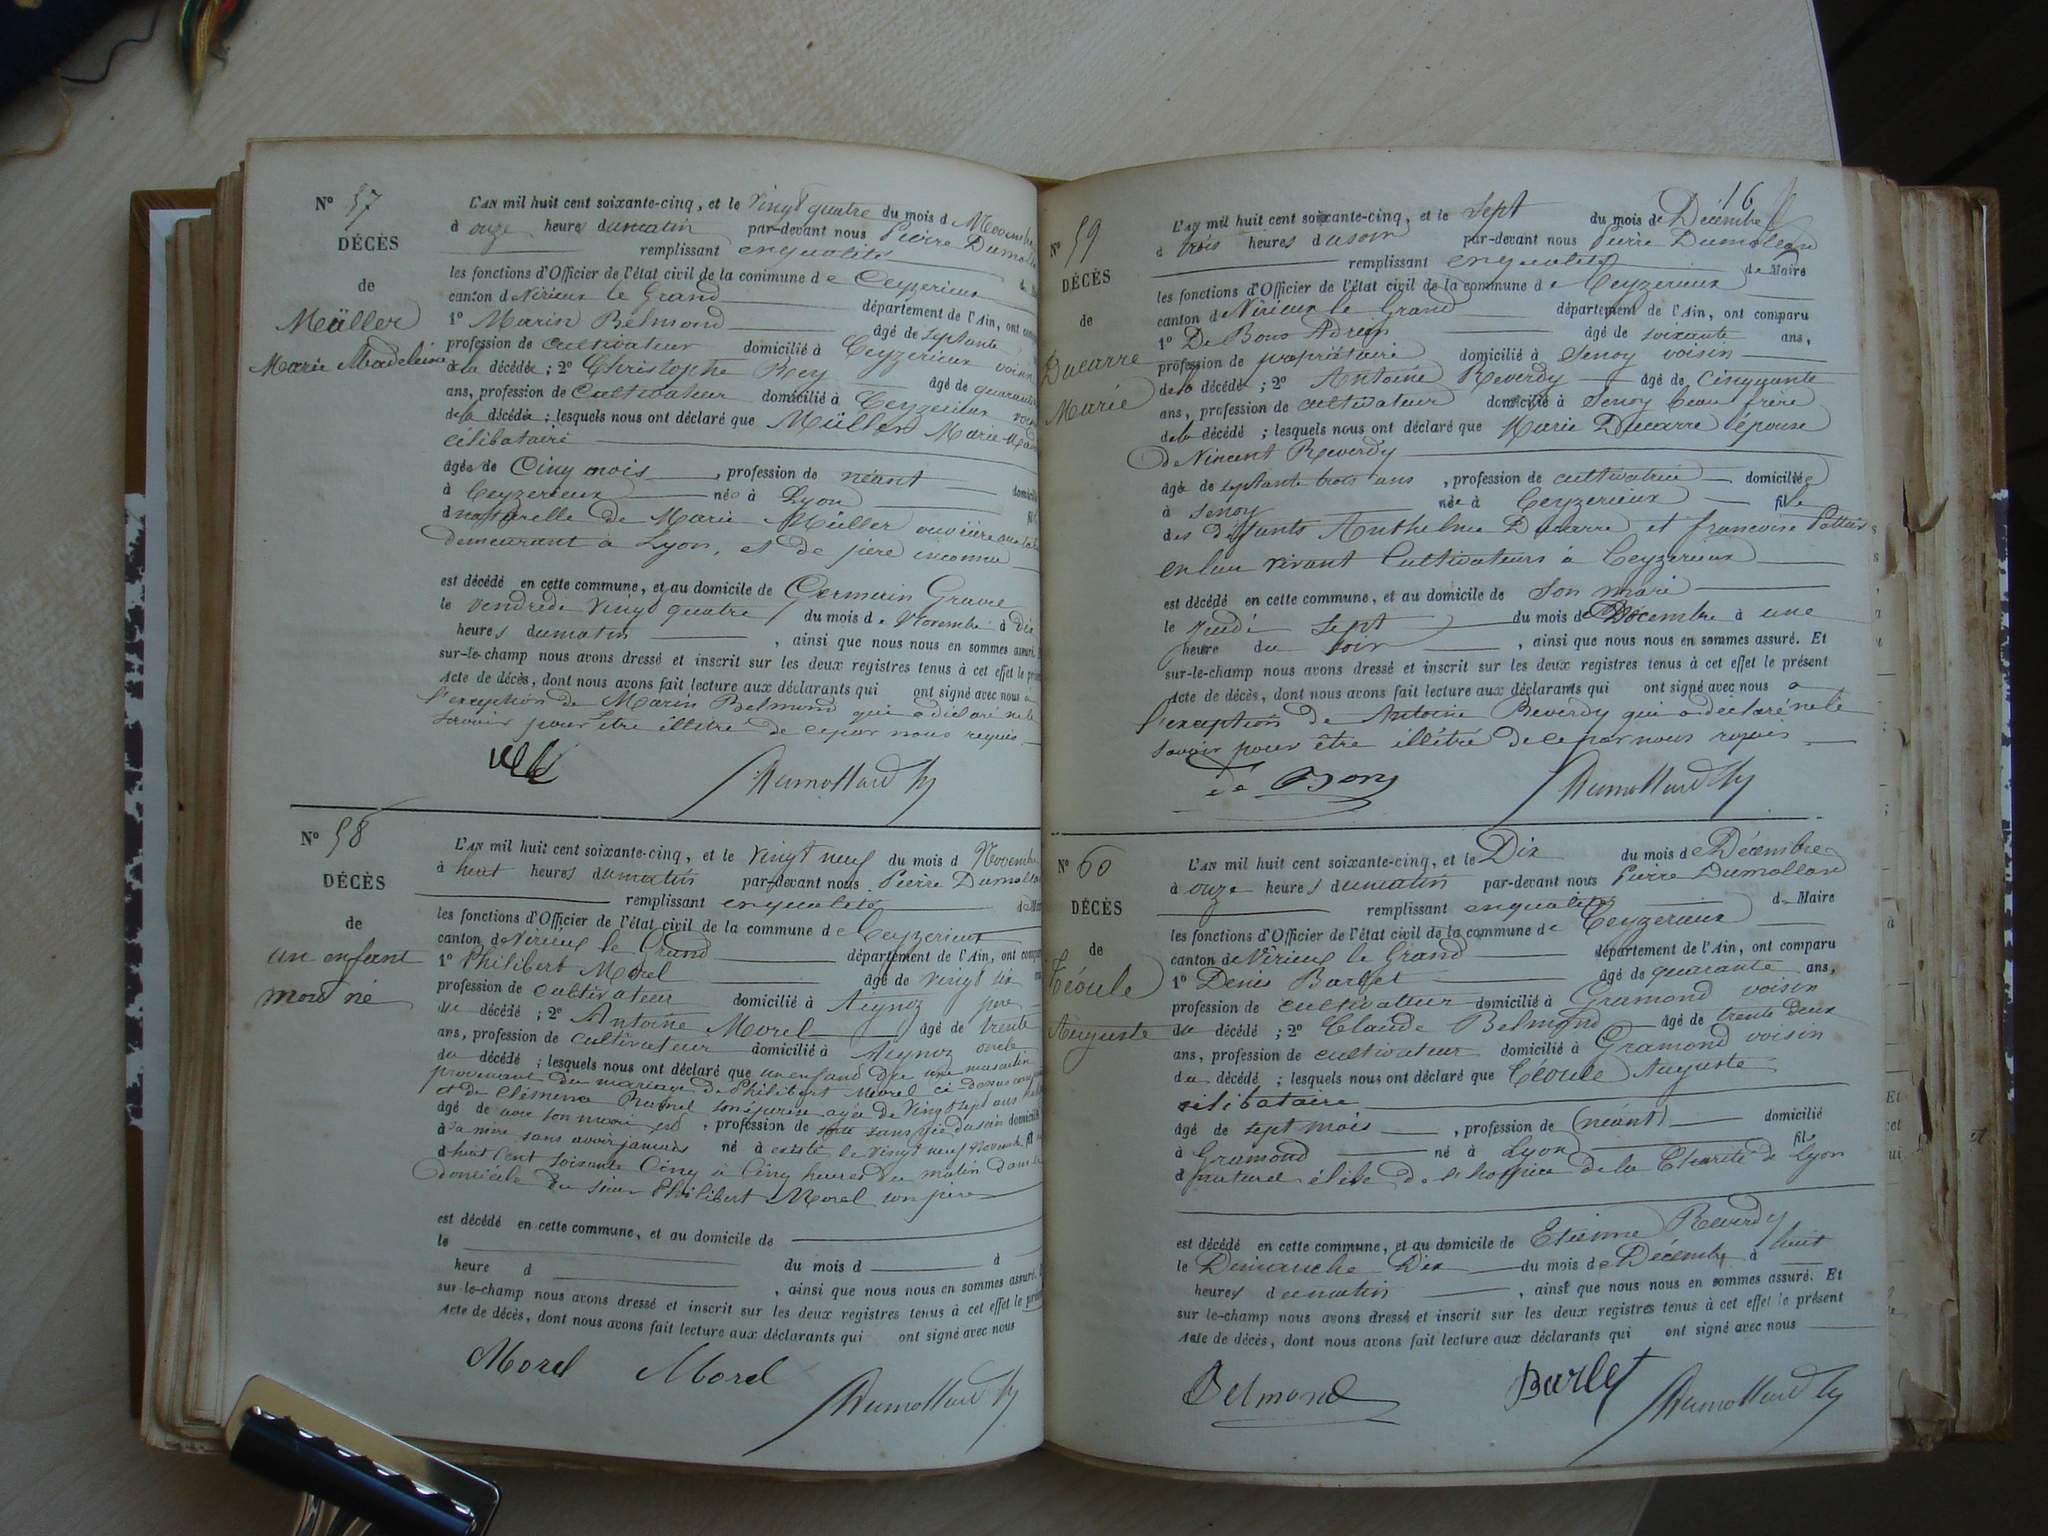 N° 57
DÉCÈS
de
Müller
Marie Madeleine
L'AN mil huit cent soixante-cinq, et le vingt quatre du mois d Novembre
à onze heures du matin par-devant nous Pierre Dumolla
remplissant en qualité
les fonctions d'Officier de l'état civil de la commune de Ceyzerieux
canton de Virieux le Grand département de l'Ain, ont com
1° Marin Belmond âgé de septante
profession de cultivateur domicilié à Ceyzerieux voisin
de la décédée ; 2° Christophe Rey âgé de quarante
ans, profession de Cultivateur domicilié à Ceyzerieux voisin
de la décédée ; lesquels nous ont déclaré que Müller Marie Mad
célibataire
âgée de Cinq mois, profession de néant domicili
à Ceyzerieux née à Lyon fil
d naturelle de Marie Müller ouvrière
demeurant à Lyon, et de père inconnu
est décédé en cette commune, et au domicile de Germain Gravel
le vendredi vingt quatre du mois de Novembre à Dix
heures du matin, ainsi que nous nous en sommes assuré.
sur-le-champ nous avons dressé et inscrit sur les deux registres tenus à cet effet le prése
Acte de décès, dont nous avons fait lecture aux déclarants qui ont signé avec nous à
l'exception de Marin Belmond qui a déclaré ne le
savoir pour être illétré de ce par nous requis
Dumollard
N° 58
DÉCÈS
de
un enfant
mort né
L'AN mil huit cent soixante-cinq, et le vingt neuf du mois d Novembre
à huit heures du matin par-devant nous Pierre Dumollar
remplissant en qualité de Mai
les fonctions d'Officier de l'état civil de la commune de Ceyzerieux
canton de Virieux le Grand département de l'Ain, ont compa
1° Philibert Morel âgé de vingt six
profession de cultivateur domicilié à Aignoz père
du décédé ; 2° Antoine Morel âgé de trente
ans, profession de cultivateur domicilié à Aignoz oncle
du décédé ; lesquels nous ont déclaré que un enfant du sexe masculin
provenant du mariage de Philibert Morel ci-dessus
et de Clémence son épouse agée de vingt sept ans
âgé de avec son mari est, profession de sorti sans vie du sein domicilié
à sa mère sans avoir jamais né à existé le vingt neuf Novembre fil
d huit cent soixante Cinq à Cinq heures du matin dans le
domicile du sieur Philibert Morel son père
est décédé en cette commune, et au domicile de
le
heure d du mois d à
, ainsi que nous nous en sommes assuré.
sur-le-champ nous avons dressé et inscrit sur les deux registres tenus à cet effet le prése
Acte de décès, dont nous avons fait lecture aux déclarants qui ont signé avec nous
Morel Morel
Dumollard
16
N° 59
DÉCÈS
de
Ducarre
Marie
L'AN mil huit cent soixante-cinq, et le sept du mois de Décembre
à trois heures du soir par-devant nous Pierre Dumollard
remplissant en qualité de Maire
les fonctions d'Officier de l'état civil de la commune de Ceyzerieux
canton de Virieux le Grand département de l'Ain, ont comparu
1° De Bons Adrien âgé de soixante ans,
profession de propriétaire domicilié à Senoy voisin
de la décédé ; 2° Antoine Reverdy âgé de cinquante
ans, profession de cultivateur domicilié à Senoy beau frère
de la décédé ; lesquels nous ont déclaré que Marie Ducarre l'épouse
de Vincent Reverdy
âgé de septante trois ans, profession de cultivatrice domiciliée
à Senoy née à Ceyzerieux fille
des défunts Anthelme Ducarre et françoise
en leur vivant Cultivateurs à Ceyzerieux
est décédé en cette commune, et au domicile de Son mari
le Jeudi sept du mois de Décembre à une
heure du soir, ainsi que nous nous en sommes assuré. Et
sur-le-champ nous avons dressé et inscrit sur les deux registres tenus à cet effet le présent
Acte de décès, dont nous avons fait lecture aux déclarants qui ont signé avec nous a
l'exception de Antoine Reverdy qui a déclaré ne le
savoir pour être illétré de ce par nous requis
de Bons
Dumollard
N° 60
DÉCÈS
de
Téoule
Auguste
L'AN mil huit cent soixante-cinq, et le Dix du mois de Décembre
à onze heures du matin par-devant nous Pierre Dumollard
remplissant en qualité d Maire
les fonctions d'Officier de l'état civil de la commune de Ceyzerieux
canton de Virieux le Grand département de l'Ain, ont comparu
1° Denis Barlet âgé de quarante ans,
profession de cultivateur domicilié à Gramond voisin
du décédé ; 2° Claude Belmond âgé de trente deux
ans, profession de cultivateur domicilié à Gramond voisin
du décédé ; lesquels nous ont déclaré que Téoule Auguste
célibataire
âgé de sept mois, profession de (néant) domicilié
à Gramond né à Lyon fils
d naturel élève de l'hospice de la Charité de Lyon
est décédé en cette commune, et au domicile de Etienne Reverdy
le Dimanche Dix du mois de Décembre à huit
heures du matin, ainsi que nous nous en sommes assuré. Et
sur le-champ nous avons dressé et inscrit sur les deux registres tenus à cet effet le présent
Acte de décès, dont nous avons fait lecture aux déclarants qui ont signé avec nous
Belmond
Barlet
Dumollard